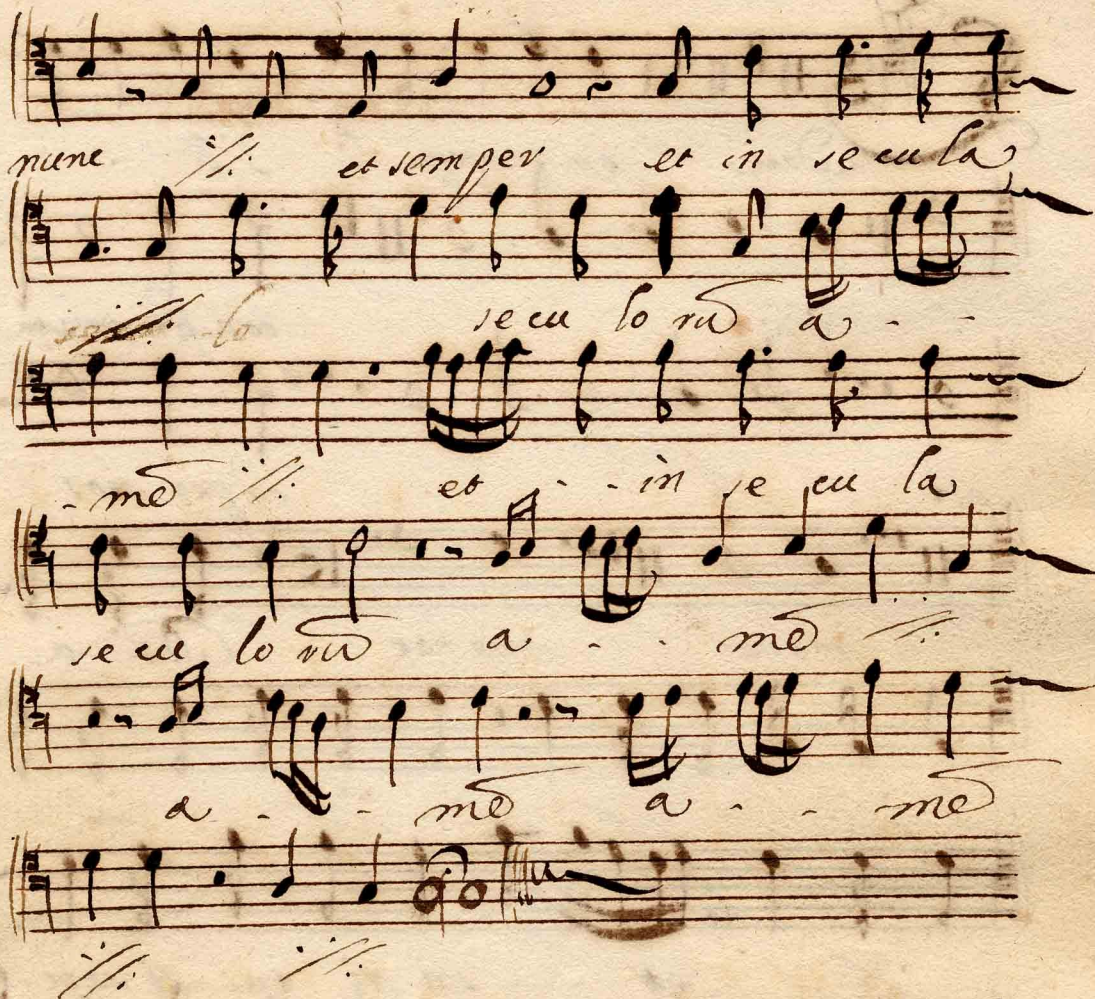 nunc ·//· et semper et in se cu la
·//· lo se cu lo rũ a - -
- mẽ ·//· et - - in se cu la
se cu lo rũ a - - mẽ ·//·
a - - mẽ a - - mẽ
·//· ·//·